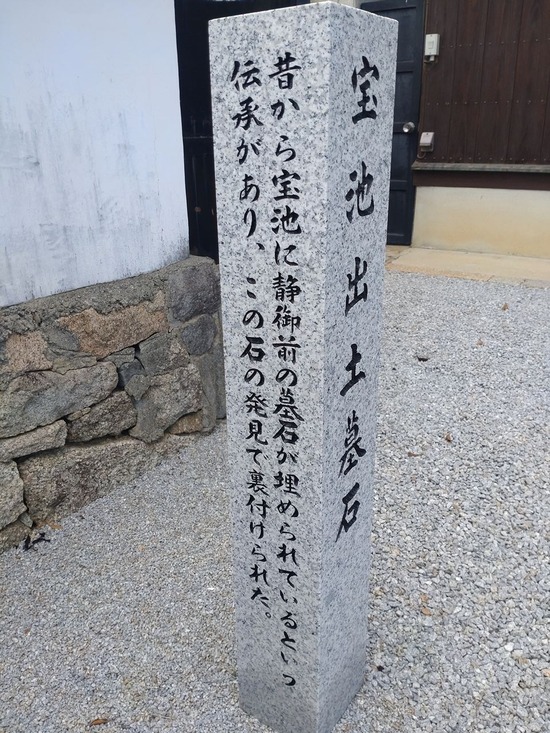 宝池出土墓石
昔から宝池に静御前の墓石が埋められているという
伝承があり、この石の発見で裏付けられた。